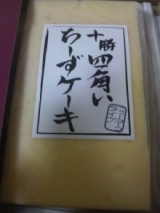 十勝四角い
ちーずケーキ